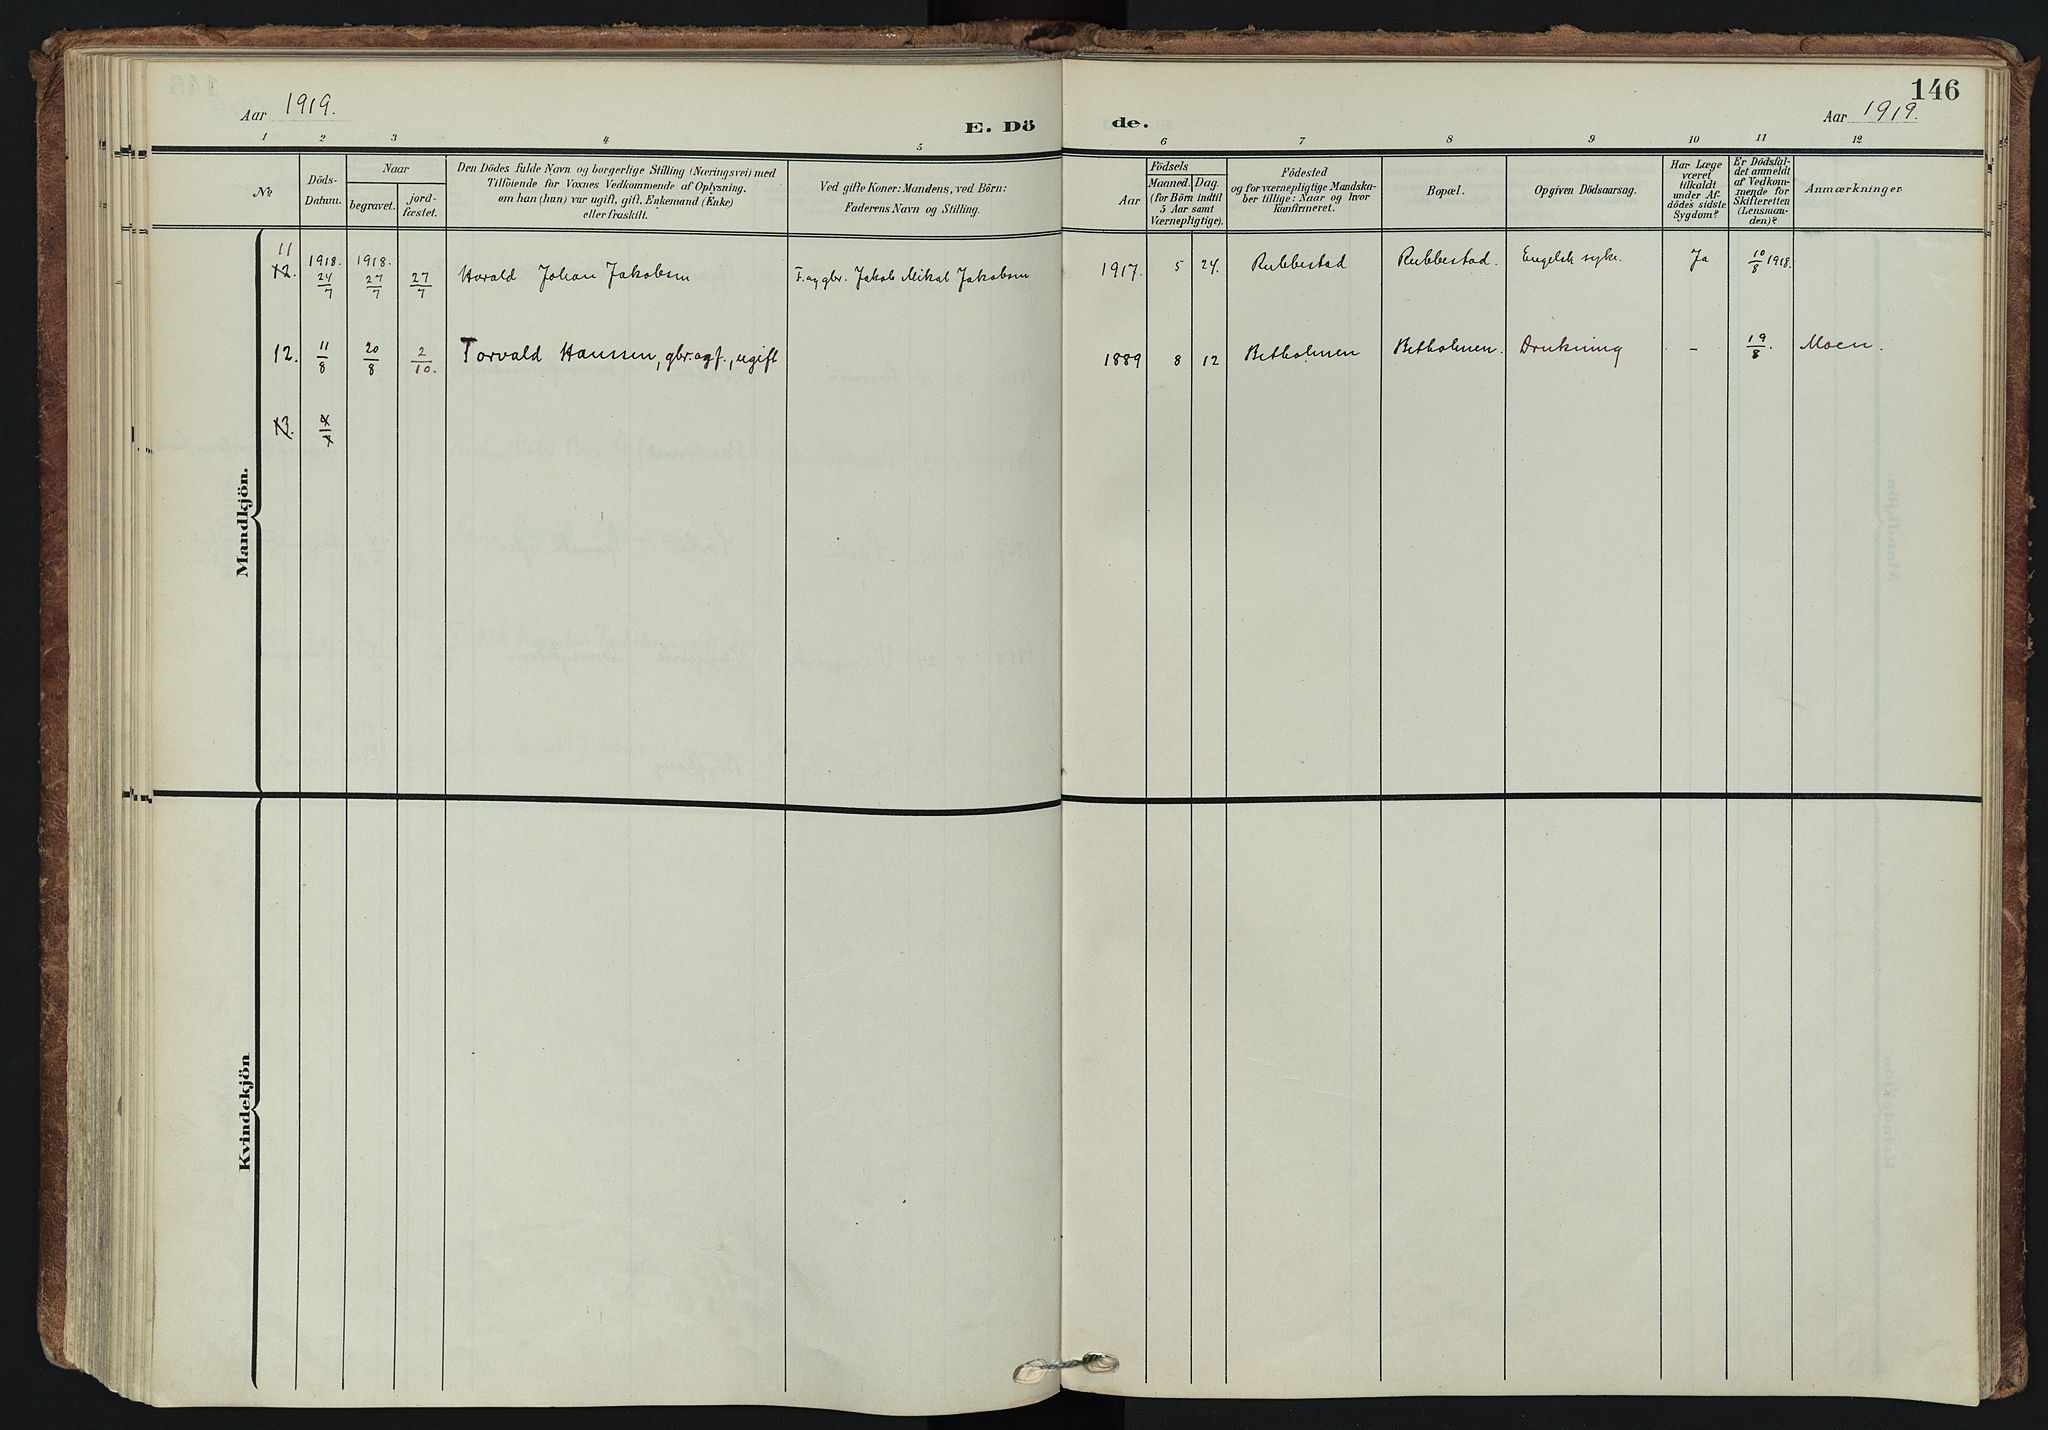 146
Aar 1919.
E. Döde.
Aar 1919.
1 2 3 4 5 6 7 8 9 10 11 12
№
Döds-
Datum.
Naar
begravet.
jord-
fæstet.
Den Dödes fulde Navn og borgerlige Stilling (Næringsvei) med
Tilföiende for Voxnes Vedkommende af Oplysning,
om han (hun) var ugift, gift, Enkemand (Enke)
eller fraskilt.
Ved gifte Koner: Mandens, ved Börn:
Faderens Navn og Stilling.
Födsels
Aar
Maaned.
Dag.
(for Börn indtil
5 Aar samt
Værnepligtige).
Födested
og for værnepligtige Mandska-
ber tillige: Naar og hvor
konfirmeret.
Bopæl.
Opgiven Dödsaarsag.
Har Læge
været
tilkaldt
under Af-
dödes sidste
Sygdom?
Er Dödsfal-
det anmeldt
af Vedkom-
mende for
Skifteretten
(Lensman-
den)?
Anmærkninger
Mandkjön.
11
12. 1918. 24/7 1918. 27/7 27/7 Harald Johan Jakobsen F. og gbr. Jakob Mikal Jakobsen 1917. 5 24. Rubbestad Rubbestad. Engelsk syke. Ja 10/8 1918.
12. 11/8 20/8 2/10. Torvald Hanssen, gbr. , ugift 1889 8 12 Betholmen Betholmen. Drukning - 19/8. Moen.
13.
Kvindekjön